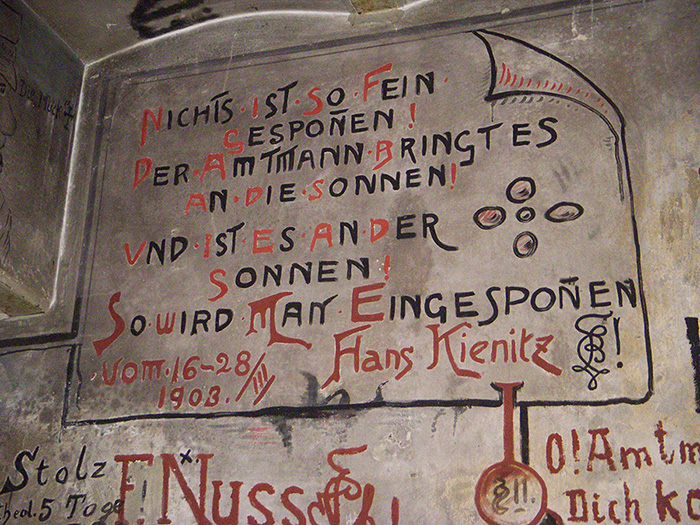 Die Mück
NICHTS·IST·SO·FEIN·
GESPOÑEN!
DER·AMTMANN·BRINGT ES
AN·DIE·SONNEN!
UND·IST·ES·AN·DER
SONNEN!
SO·WIRD·MAN·EINGESPOÑEN!
VOM·16–28/III
1903.
Hans Kienitz
Stolz
theol. 5 Tage
F. NUSS
§ 11.
O! Amtm
Dich